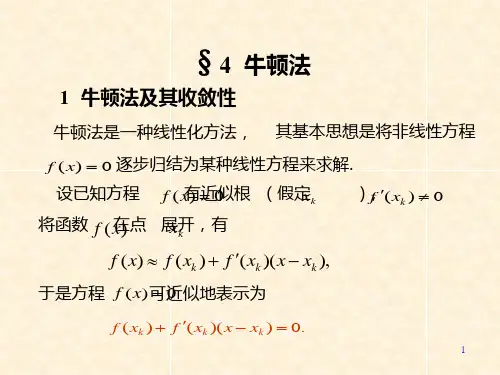 §4 牛顿法
1 牛顿法及其收敛性
牛顿法是一种线性化方法， 其基本思想是将非线性方程
f(x) = 0 逐步归结为某种线性方程来求解.
设已知方程 f(x) = 0 有近似根 x_k （假定 f′(x_k) ≠ 0 ），
将函数 f(x) 在点 x_k 展开，有
f(x) ≈ f(x_k) + f′(x_k)(x − x_k),
于是方程 f(x) = 0 可近似地表示为
f(x_k) + f′(x_k)(x − x_k) = 0.
1